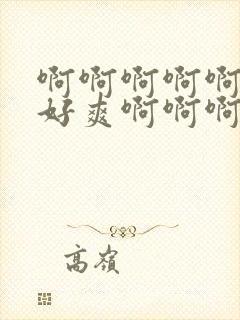 啊啊啊啊啊
好爽啊啊啊
高嶺